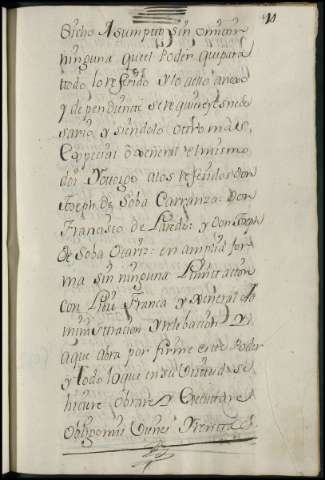 11
Dicho Asumpto, sin omitir
ninguna quiel Poder quipara
todo lo referido y lo a ello anexo
y dependiente se requiere es nece
sario, y siendolo otro mas
Especial o General el mismo
doi y otorgo a los referidos Don
Joseph de Soba Carranza: Don
Francisco de Laredo: y Don Joseph
de Soba Otañz: en amplia for
ma sin ninguna Limitacion
con Libre Franca y General ad
ministracion y relebacion y
a que Abra por firme este Poder
y Todo lo que en su Virtud se
hiciere Obrare y Executare
Obligo mis vienes y Rentas